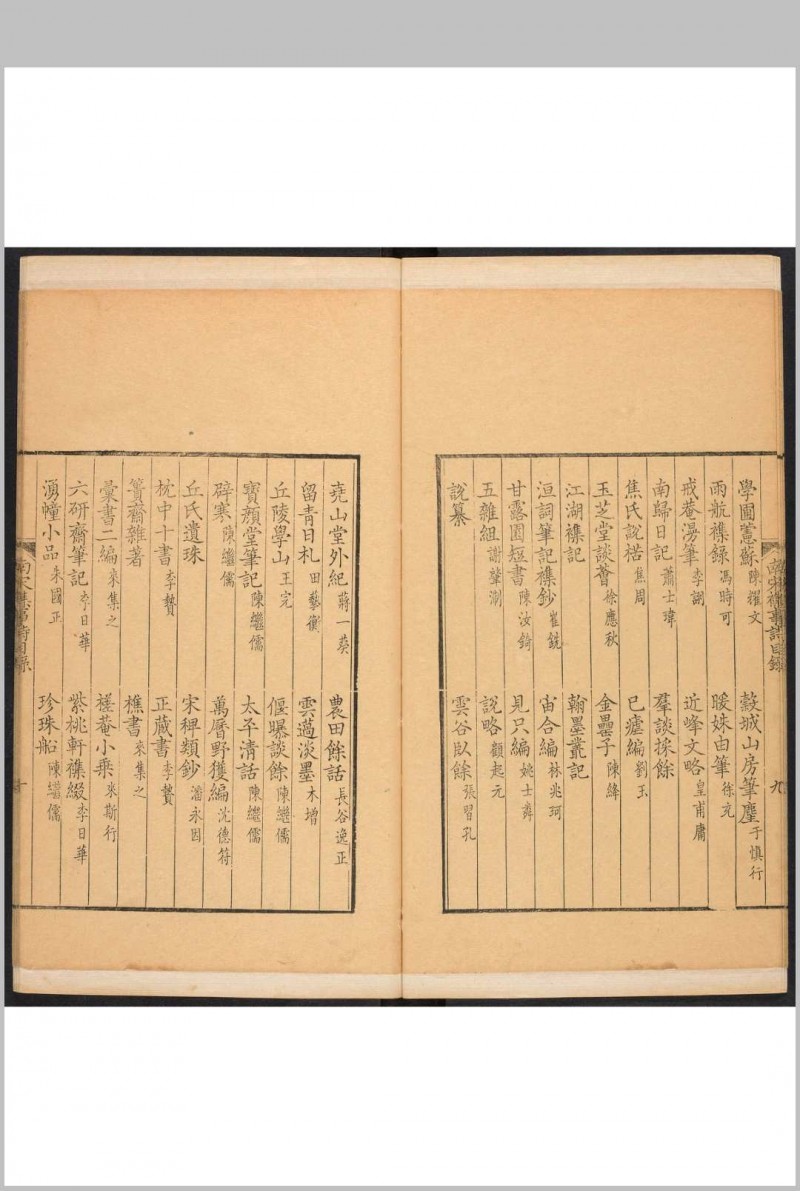 學圃蕙蘇 陳耀文 穀城山房筆麈 于慎行
雨航襍錄 馮時可 暖姝由筆 徐充
戒菴漫筆 李詡 近峰文略 皇甫庸
南歸日記 蕭士瑋 羣談採餘
焦氏說楛 焦周 已瘧編 劉玉
玉芝堂談薈 徐應秋 金罍子 陳絳
江湖襍記 翰墨叢記
洹詞筆記襍鈔 崔銑 宙合編 林兆珂
甘露園短書 陳汝錡 見只編 姚士粦
五雜組 謝肇淛 說略 顧起元
說纂 雲谷臥餘 張習孔
堯山堂外紀 蔣一葵 農田餘話 長谷逸正
留青日札 田藝衡 雲邁淡墨 木增
丘陵學山 王完 偃曝談餘 陳繼儒
寶顏堂筆記 陳繼儒 太平清話 陳繼儒
辟寒 陳繼儒 萬曆野獲編 沈德符
丘氏遺珠 宋稗類鈔 潘永因
枕中十書 李贄 正藏書 李贄
簣齋雜著 樵書 來集之
彙書二編 來集之 槎菴小乘 來斯行
六研齋筆記 李日華 紫桃軒襍綴 李日華
湧幢小品 朱國正 珍珠船 陳繼儒
南宋襍事詩目錄 九
南宋襍事詩目錄 十